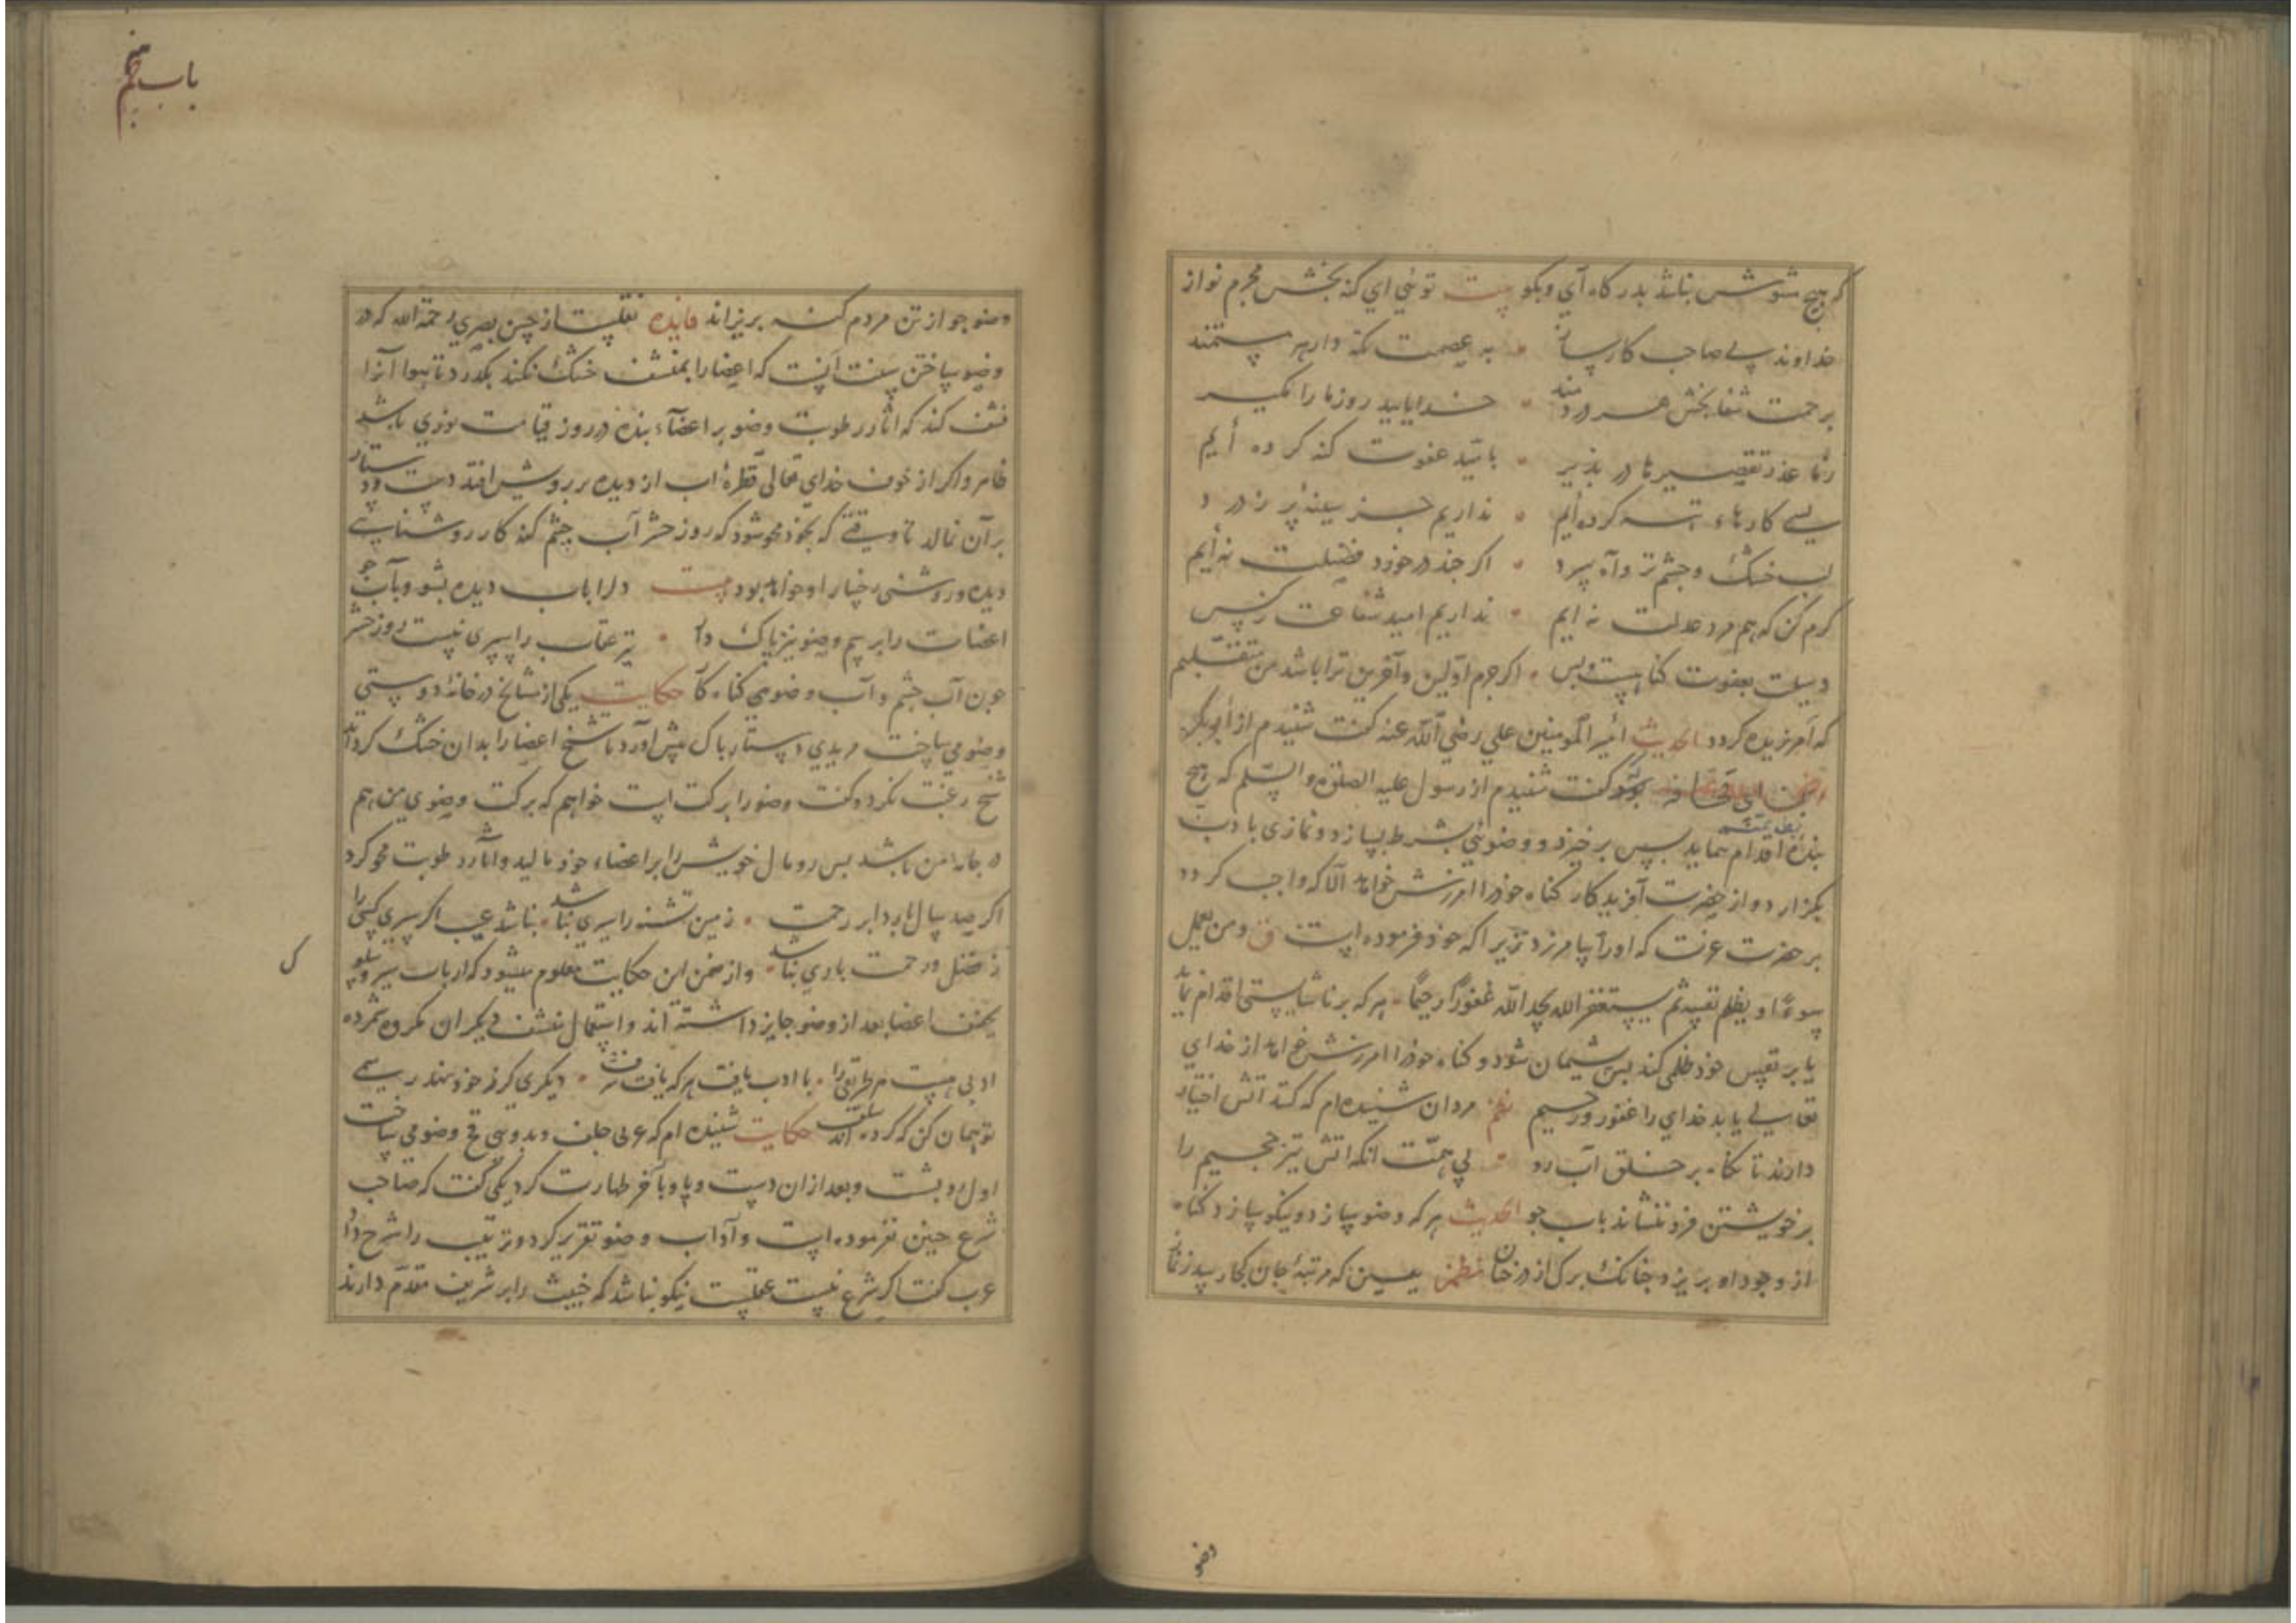 که هیچ سوش نباشد بدرکاه آی وبکو بیت توئی ای کنه بخش مجرم نواز
خداوند بی صاحب کارساز به عصمت نکه دار هر مستمند
برحمت شفا بخش هر دردمند خدایا بید روز ما را مکیر
رنما عذر تقصیر ما در بذیر بامید عفوت کنه کرده ایم
بسی کارهاء تبه کرده ایم نداریم جز سینهٔ پر ز درد
لب خشک وچشم تر وآه سرد اکر جند درخورد فضیلت نه ایم
کرم کن که هم مرد عدلت نه ایم نداریم امید شفاعت ز کس
وسیلت بعفوت کناهست وبس اکر جرم اولین وآخرین ترا باشد من متقبلم
که آمرزیده کردد الحدیث امیر المومنین علی رضی الله عنه کفت شنیدم از ابوبکر
ابن ابی قحافه کفت شنیدم از رسول علیه الصلوة والسلم که هیچ
بنده اقدام نماید بس برخیزد و وضوئی بشرط بسازد ونمازی با ادب
بکزارد واز حضرت آفریدکار کناه خود را امرزش خواهد الا که واجب کردد
برحضرت عزت که اورا بیامرزد زیرا که خود فرموده است ق ومن یعمل
سوءًا او یظلم نفسه ثم یستغفر الله یجد الله غفورًا رحیمًا هرکه بر ناشایستی اقدام نماید
یا بر نفس خود ظلمی کند بس بشیمان شود وکناه خود را امرزش خواهد از خدای
تعالی یابد خدای را غفور ورحیم نظم مردان شنیده ام که کند اتش اختیار
دارند تا نکاه بر خلق آب رو بی همت انکه اتش تیز جحیم را
برخویشتن فرو ننشاند باب جو الحدیث هرکه وضو سازد ونیکو سازد کناه
از وجود او بریزد جنانک برک از درختان نظم ببین که مرتبهٔ جان بکجا رسد ز نماز
وضو
باب پنجم
وضو جو از تن مردم کنه بریزاند فایده نقلست از حسن بصری رحمة الله که در
وضو ساختن سنت آنست که اعضا را بمنشف خشک نکند بکذرد تا هوا آنرا
نشف کند که اثار رطوبت وضو بر اعضآء بنده در روز قیامت نوری باشد
ظاهر واکر از خوف خدای تعالی قطرهٔ اب از دیده بر رویش افتد دست ودستار
برآن نمالد تا وقتی که بخود محو شود که روز حشر آب چشم کند کار روشنایی
دیده وروشنی رخسار او خواهد بود بیت دل را باب دیده بشو وباب جو
اعضات را برسم وضو نیز پاک دار تیر عتاب را سپری نیست روز حشر
جون آب چشم وآب وضوی کناه کار حکایت یکی از مشایخ در خانهٔ دوستی
وضو می ساخت مریدی دستار باک بیش آورد تا شیخ اعضا را بدان خشک کرداند
شیخ رغبت نکرد وکفت وضو را برکت است خواهم که برکت وضوی من هم
در جامه من باشد بس رومال خویش را بر اعضاء خود مالید واثار رطوبت محو کرد
اکر صد سال بارد ابر رحمت زمین تشنه را سیری نباشد نباشد عیب اکر سیری کسی را
ز فضل ورحمت باری نباشد واز ضمن این حکایت معلوم میشود که ارباب سیر وسلوک
تجفیف اعضا بعد از وضو جایز داشته اند واستعمال نشف دیکران مکروه شمرده
ک
ادبی هست مر طریق را با ادب یافت هرکه یافت شرف دیکری کر ز خود نهد رسمی
تو همان کن که کرده اند سلف حکایت شنیده ام که عربی جلف وبدوی قح وضو می ساخت
اول رو بشست وبعد از ان دست وپا وبآخر طهارت کرد یکی کفت که صاحب
شرع چنین نفرموده است وآداب وضو تقریر کرد وترتیب را شرح داد
عرب کفت اکر شرع نیست عقلیست نیکو نباشد که خبیث را بر شریف مقدم دارند